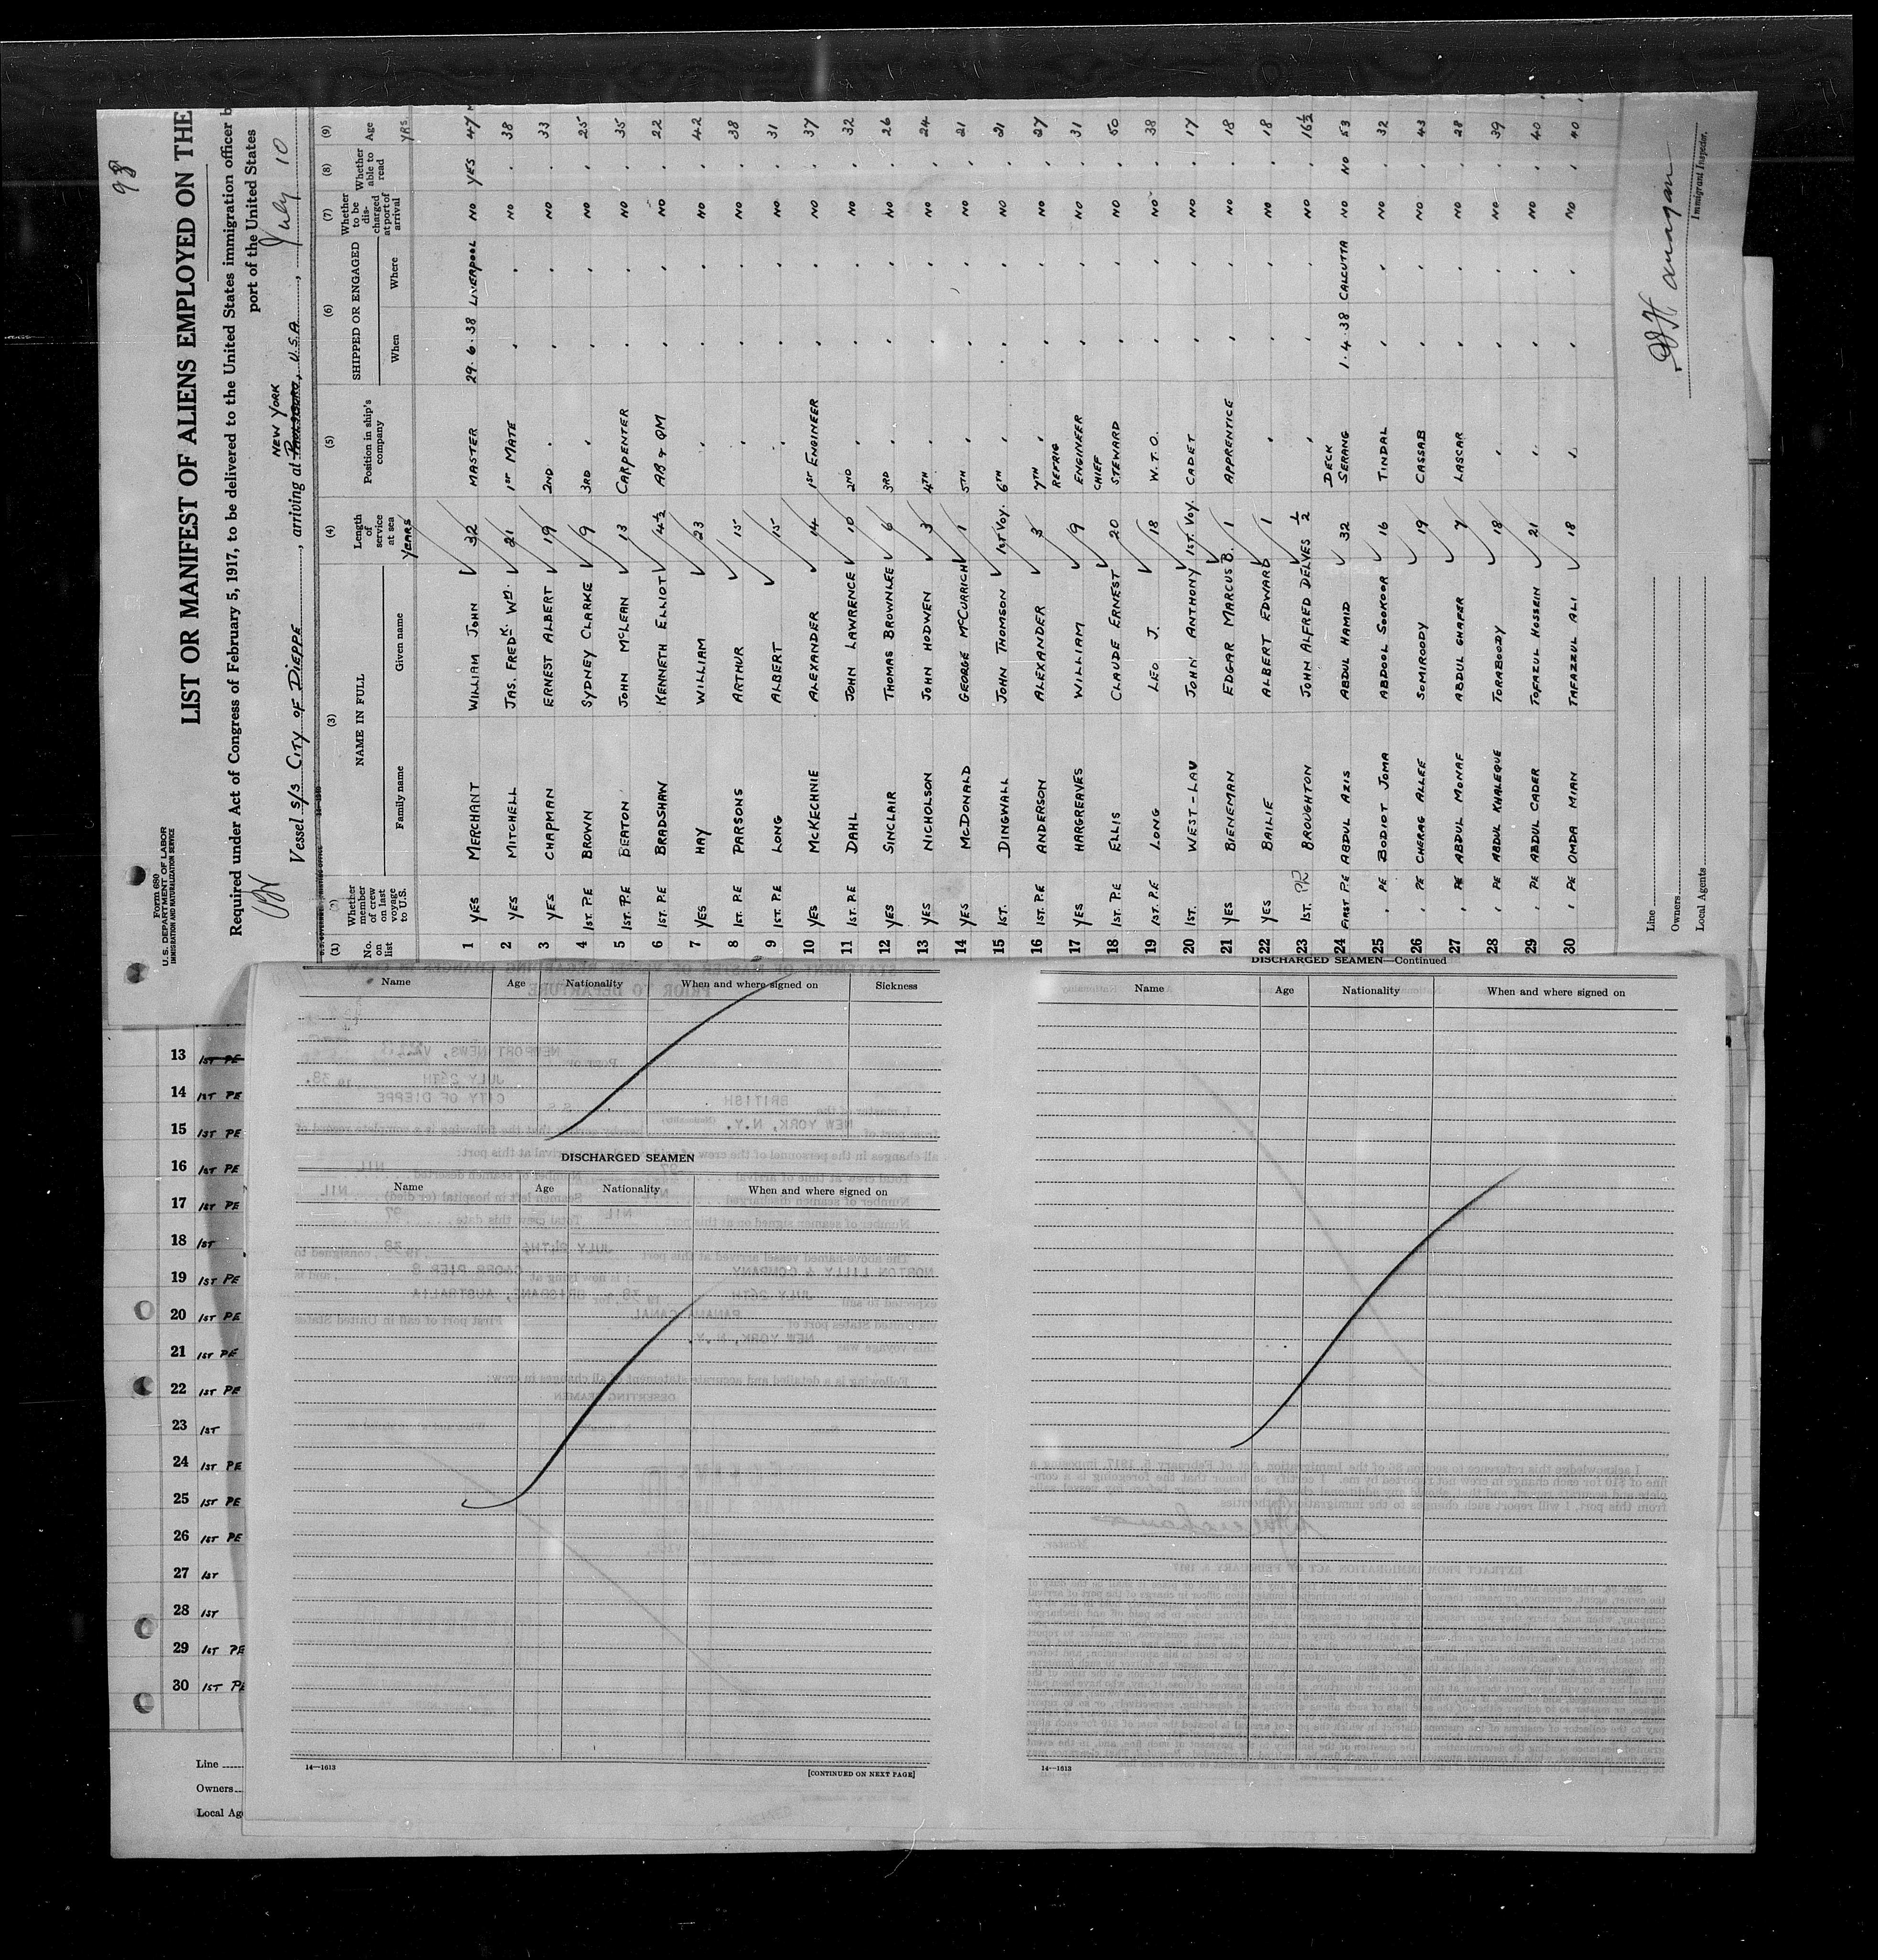 98
Form 680
U. S. DEPARTMENT OF LABOR
IMMIGRATION AND NATURALIZATION SERVICE
LIST OR MANIFEST OF ALIENS EMPLOYED ON THE
Required under Act of Congress of February 5, 1917, to be delivered to the United States immigration officer b
port of the United States
NEW YORK
Vessel S/S CITY OF DIEPPE, arriving at U.S.A., July 10
(1) (2) (3) (4) (5) (6) (7) (8) (9)
No. on list Whether member of crew on last voyage to U.S. NAME IN FULL Family name Given name Length of service at sea YEARS Position in ship's company SHIPPED OR ENGAGED When Where Whether to be discharged at port of arrival Whether able to read Age YRS
1 YES MERCHANT WILLIAM JOHN 32 MASTER 29.6.38 LIVERPOOL NO YES 47
2 YES MITCHELL JAS. FREDK. WM. 21 1ST MATE " " NO " 38
3 YES CHAPMAN ERNEST ALBERT 19 2ND " " " NO " 33
4 1ST. P.E BROWN SYDNEY CLARKE 9 3RD " " " NO " 25
5 1ST. P.E DEATON JOHN McLEAN 13 CARPENTER " " NO " 35
6 1ST. P.E BRADSHAW KENNETH ELLIOT 4½ AB & QM " " NO " 22
7 YES HAY WILLIAM 23 " " " NO " 42
8 1ST. P.E PARSONS ARTHUR 15 " " " NO " 38
9 1ST. P.E LONG ALBERT 15 " " " NO " 31
10 YES McKECHNIE ALEXANDER 14 1ST ENGINEER " " NO " 37
11 1ST. P.E DAHL JOHN LAWRENCE 10 2ND " " " NO " 32
12 YES SINCLAIR THOMAS BROWNLEE 6 3RD " " " NO " 26
13 YES NICHOLSON JOHN HODWEN 3 4TH " " " NO " 24
14 YES McDONALD GEORGE McCURRICH 1 5TH " " " NO " 21
15 1ST. DINGWALL JOHN THOMSON 1ST VOY. 6TH " " " NO " 21
16 1ST. P.E ANDERSON ALEXANDER 3 7TH " " " NO " 27
17 YES HARGREAVES WILLIAM 9 REFRIG ENGINEER " " NO " 31
18 1ST. P.E ELLIS CLAUDE ERNEST 20 CHIEF STEWARD " " NO " 50
19 1ST. P.E LONG LEO J. 18 W.T.O. " " NO " 38
20 1ST. WEST-LAW JOHN ANTHONY 1ST. VOY. CADET " " NO " 17
21 YES BIENEMAN EDGAR MARCUS B. 1 APPRENTICE " " NO " 18
22 YES BAILIE ALBERT EDWARD 1 " " " NO " 18
23 1ST. PE BROUGHTON JOHN ALFRED DELVES ½ " " " NO " 16½
24 FIRST P.E ABDUL AZIS ABDUL HAMID 32 DECK SERANG 1.4.38 CALCUTTA NO NO 53
25 " PE BODIOT JOMA ABDOOL SOOKOOR 16 TINDAL " " NO " 32
26 " PE CHERAG ALLEE SOMIROODY 19 CASSAB " " NO " 43
27 " PE ABDUL MONAF ABDUL GHAFER 7 LASCAR " " NO " 28
28 " PE ABDUL KHALEQUE TORABOODY 18 " " " NO " 39
29 " PE ABDUL CADER TOFAZUL HOSSEIN 21 " " " NO " 40
30 " PE OMDA MIAN TAFAZZUL ALI 18 " " " NO " 40
Line
Owners
Local Agents
Immigrant Inspector.
Name Age Nationality When and where signed on Sickness
DISCHARGED SEAMEN
Name Age Nationality When and where signed on
14—1613 [CONTINUED ON NEXT PAGE]
DISCHARGED SEAMEN—Continued
Name Age Nationality When and where signed on
14—1613
13 1ST PE
14 1ST PE
15 1ST PE
16 1ST PE
17 1ST PE
18 1ST
19 1ST PE
20 1ST PE
21 1ST PE
22 1ST PE
23 1ST
24 1ST PE
25 1ST PE
26 1ST PE
27 1ST
28 1ST
29 1ST PE
30 1ST PE
Line
Owners
Local Ag